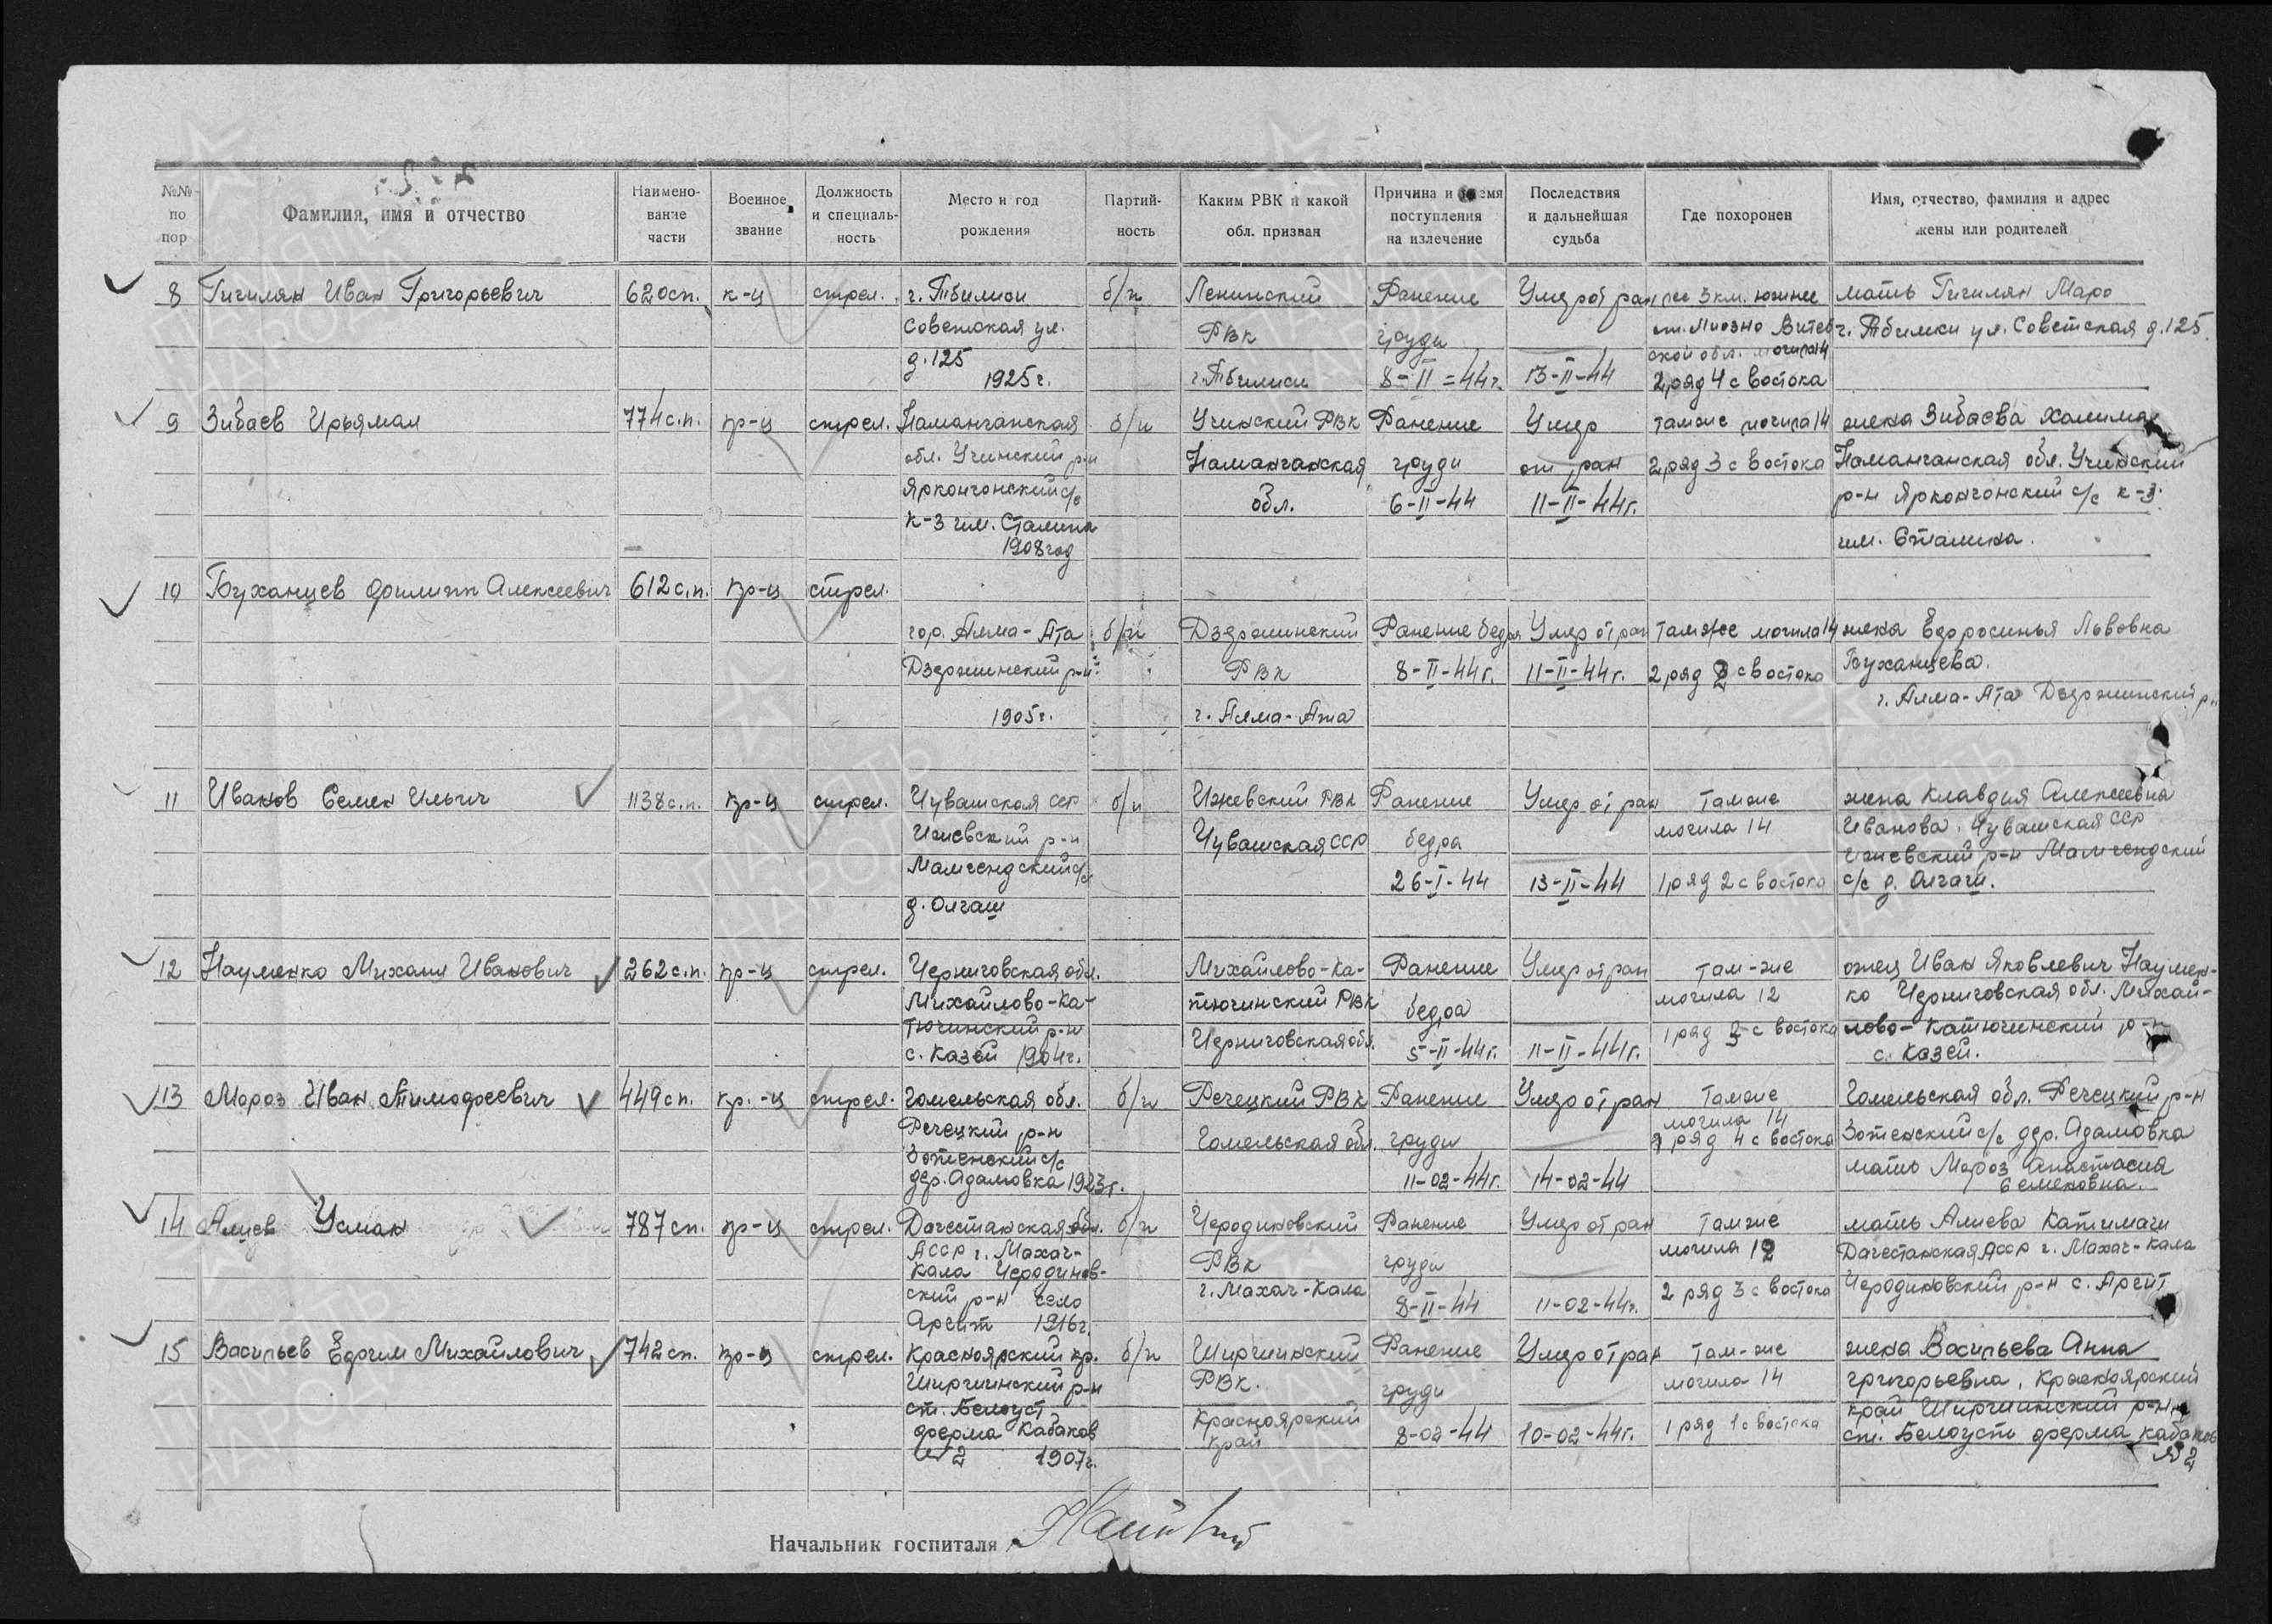 №№ по пор
Фамилия, имя и отчество
Наимено- вание части
Военное звание
Должность и специаль- ность
Место и год рождения
Партий- ность
Каким РВК и какой обл. призван
Причина и время поступления на излечение
Последствия и дальнейшая судьба
Где похоронен
Имя, отчество, фамилия и адрес жены или родителей
8 Гигилян Иван Григорьевич 620 сп. к-ц стрел. г. Тбилиси б/п Ленинский Ранение Умер от ран лес 3 км. южнее мать Гигилян Маро
Советская ул. РВК груди ст. Лиозно Витеб- г. Тбилиси ул. Советская д. 125
д. 125 ской обл. могила 14
1925 г. г. Тбилиси 8-II-44 г. 13-II-44 2 ряд 4 с востока
9 Зибаев Ирьямал 774 с.п. кр-ц стрел. Наманганская б/п Учинский РВК Ранение Умер там же могила 14 жена Зибаева Халима
обл. Учинский р-н Наманганская груди от ран 2 ряд 3 с востока Наманганская обл. Учинский
Яркончонский с/с обл. 6-II-44 11-II-44 г. р-н Яркончонский с/с к-з
к-з им. Сталина им. Сталина.
1908 год
10 Буханцев Филипп Алексеевич 612 с.п. кр-ц стрел.
гор. Алма-Ата б/п Дзержинский Ранение бедра Умер от ран там же могила 14 жена Ефросинья Львовна
Дзержинский р-н РВК 8-II-44 г. 11-II-44 г. 2 ряд 2 с востока Буханцева.
1905 г. г. Алма-Ата г. Алма-Ата Дзержинский р-н
11 Иванов Семен Ильич 1138 с.п. кр-ц стрел. Чувашская ССР б/п Ижевский РВК Ранение Умер от ран там же жена Клавдия Алексеевна
Ижевский р-н Чувашская ССР бедра могила 14 Иванова. Чувашская ССР
Мамчендский с/с Ижевский р-н Мамчендский
26-I-44 13-II-44 1 ряд 2 с востока с/с д. Олгаш.
д. Олгаш
12 Науменко Михаил Иванович 262 с.п. кр-ц стрел. Черниговская обл. Михайлово-Ка- Ранение Умер от ран там-же отец Иван Яковлевич Наумен-
Михайлово-Ка- тючинский РВК бедра могила 12 ко Черниговская обл. Михай-
тючинский р-н Черниговская обл. 1 ряд 3 с востока лово-Катючинский р-н
с. Казей 1904 г. 5-II-44 г. 11-II-44 г. с. Казей.
13 Мороз Иван Тимофеевич 449 сп. кр.-ц стрел. Гомельская обл. б/п Речецкий РВК Ранение Умер от ран там же Гомельская обл. Речецкий р-н
Речецкий р-н Гомельская обл. груди могила 14 Зотенский с/с дер. Адамовка
Зотенский с/с 2 ряд 4 с востока мать Мороз Анастасия
дер. Адамовка 1923 г. 11-02-44 г. 14-02-44 Семеновна.
14 Алиев Усман 787 сп. кр-ц стрел. Дагестанская обл. б/п Черодиновский Ранение Умер от ран там же мать Алиева Катимачи
АССР г. Махач- РВК груди могила 12 Дагестанская АССР г. Махач-Кала
Кала Черодинов- г. Махач-Кала 2 ряд 3 с востока Черодиновский р-н с. Арсит
ский р-н село 8-II-44 11-02-44 г.
Арсит 1916 г.
15 Васильев Ефим Михайлович 742 сп. кр-ц стрел. Красноярский кр. б/п Ширчинский Ранение Умер от ран там-же жена Васильева Анна
Ширчинский р-н РВК. груди могила 14 Григорьевна, Красноярский
ст. Белоуст Красноярский край Ширчинский р-н
ферма Кабаков край 8-02-44 10-02-44 г. 1 ряд 1 с востока ст. Белоусть ферма Кабаков
№ 2 1907 г. № 2
Начальник госпиталя
ПАМЯТЬ НАРОДА